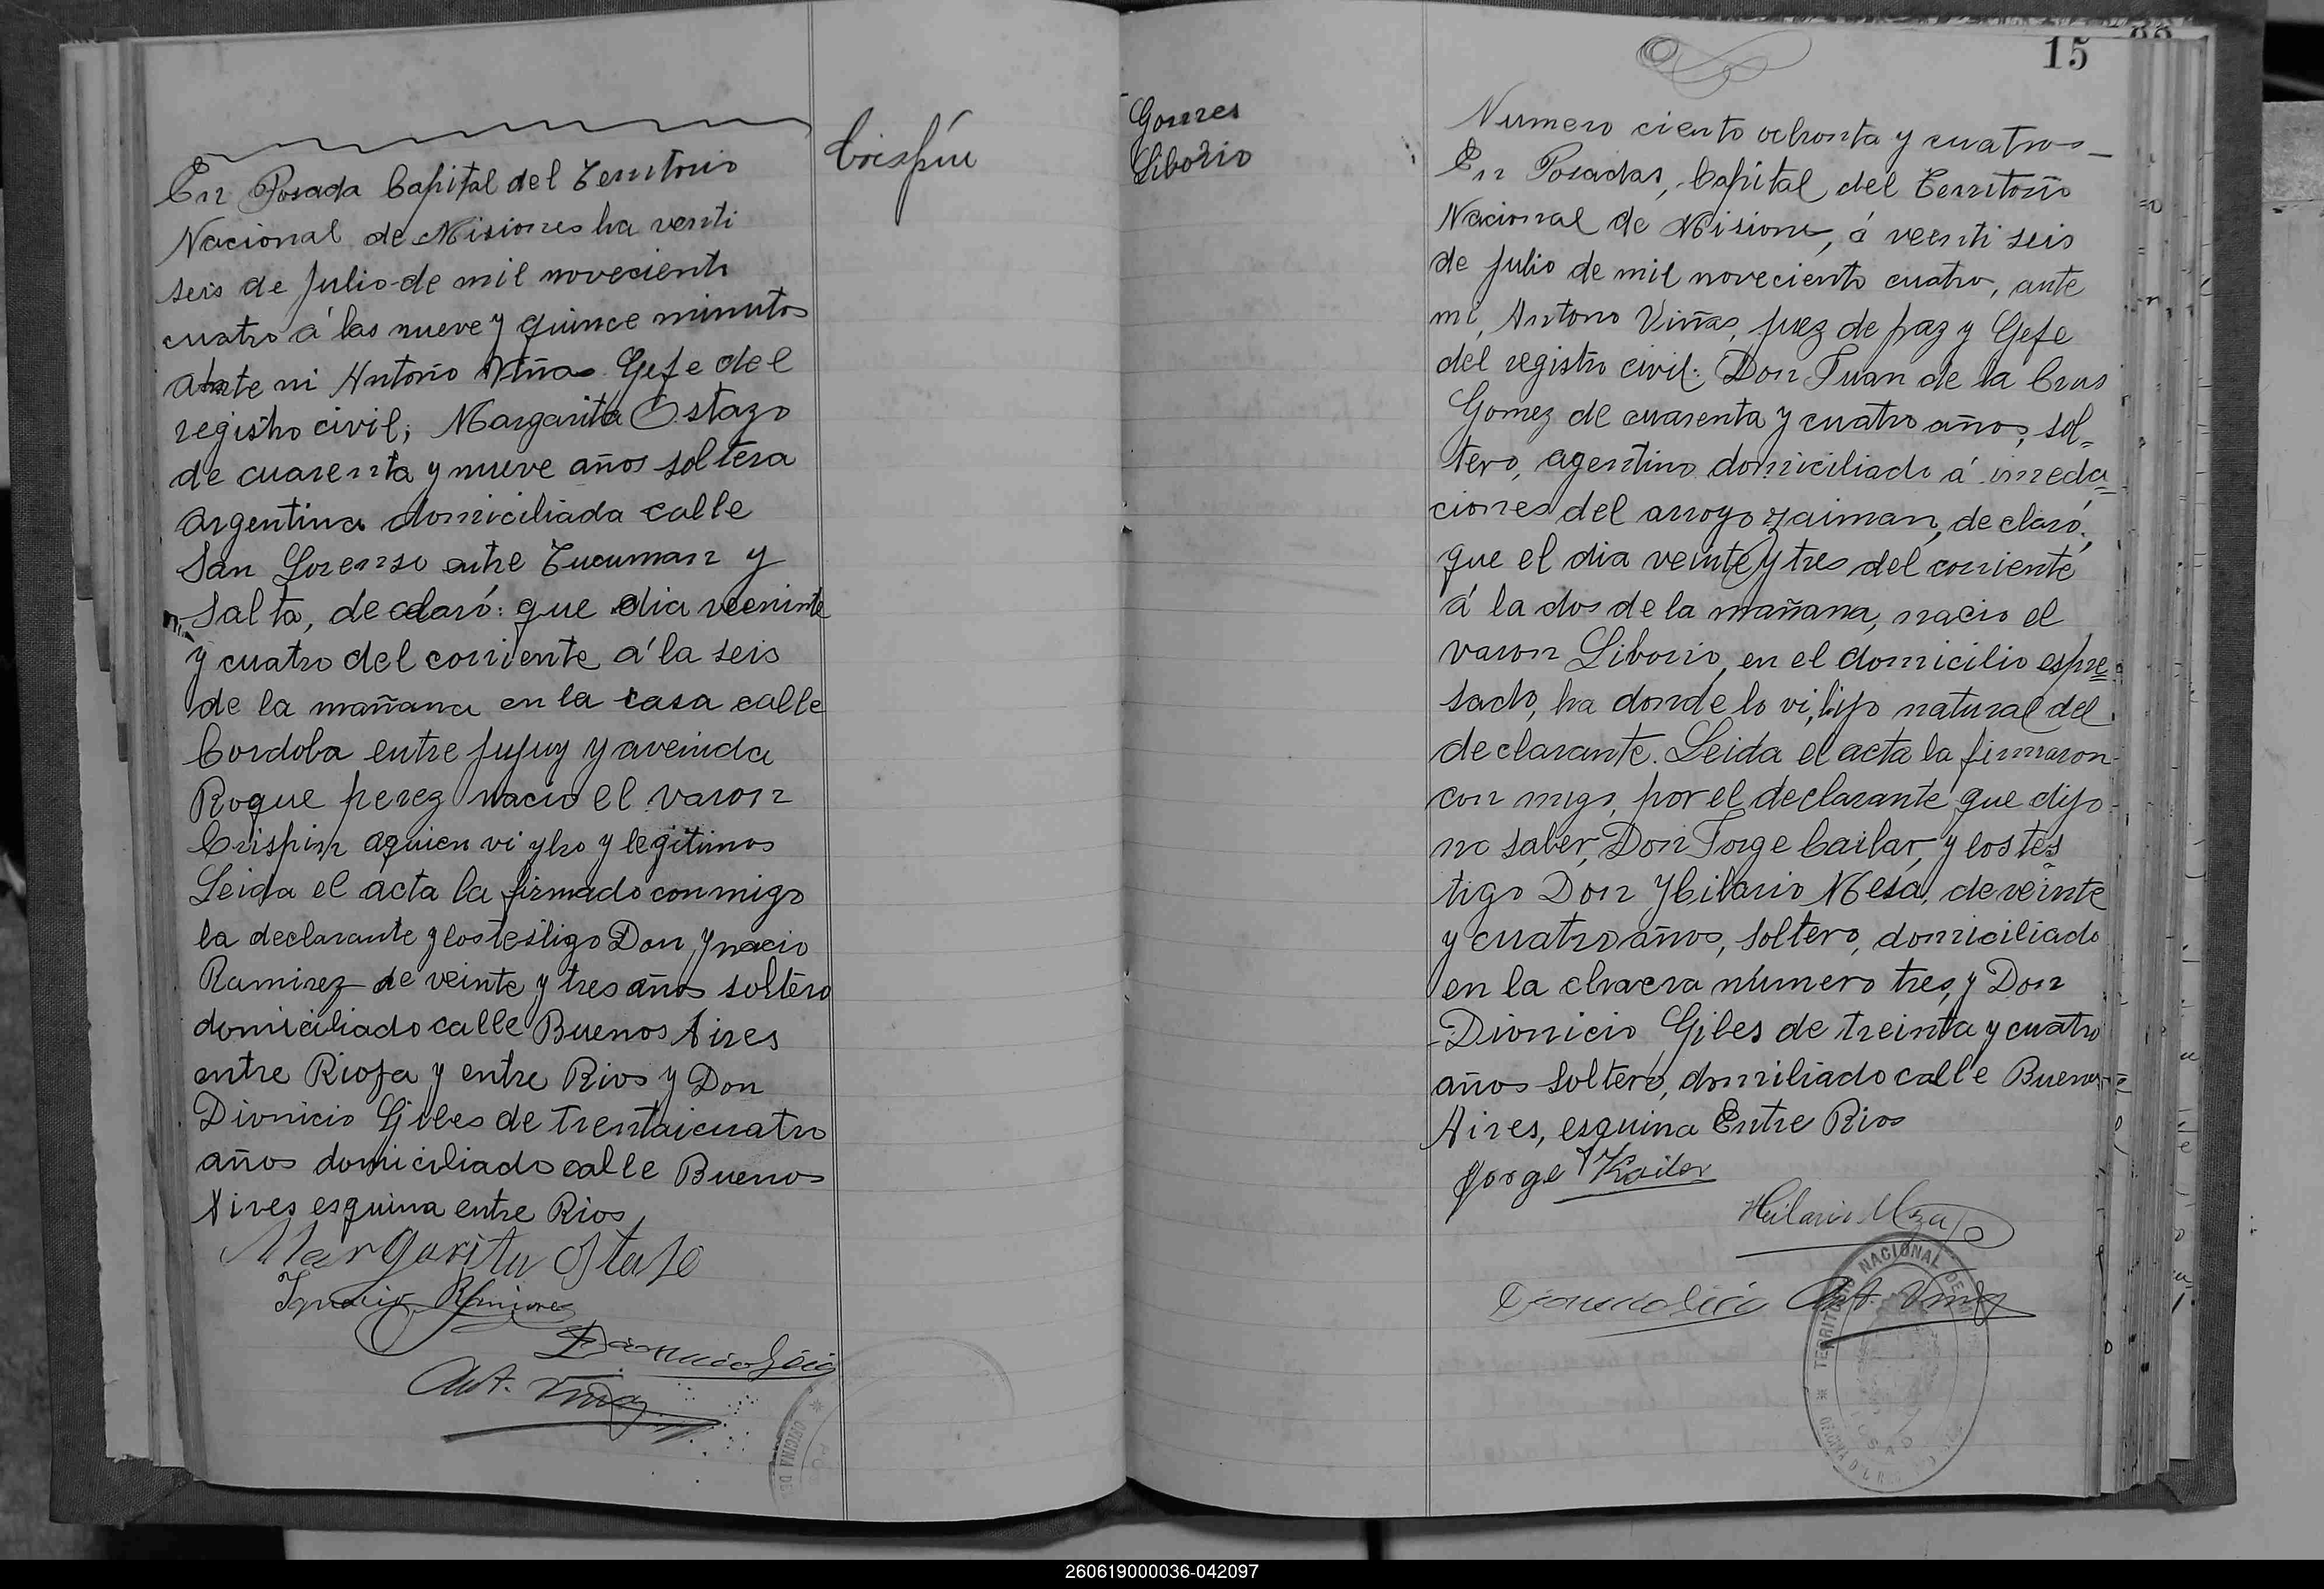 Crispín
En Posada Capital del Territorio
Nacional de Misiones ha venti
seis de Julio de mil noveciento
cuatro á las nueve y quince minutos
ante mi Antonio Viñas Gefe del
registro civil; Margarita Ostazo
de cuarenta y nueve años soltera
argentina domiciliada calle
San Lorenso entre Tucuman y
Salta, declaró: que dia veeninte
y cuatro del corriente á la seis
de la mañana en la casa calle
Cordoba entre Jujuy y avenida
Roque perez nacio el varon
Crispin aquien vi yho y legitimos
Leida el acta la firmado conmigo
la declarante y los testigo Don Ynacio
Ramirez de veinte y tres años soltero
domiciliado calle Buenos Aires
entre Rioja y entre Rios y Don
Dionicio Giles de trentaicuatro
años domiciliado calle Buenos
Aires esquina entre Rios
Margarita Ostaso
Ignacio Ramirez
Ant. Viñas
OFICINA DEL
15
Gomes
Liborio
Numero ciento ochonta y cuatro
En Posadas, Capital del Territorio
Nacional de Misione, á veenti seis
de Julio de mil noveciento cuatro, ante
mi, Antono Viñas, juez de paz y Gefe
del registro civil: Don Juan de la Crus
Gomez de cuarenta y cuatro años, sol=
tero, agentino domiciliado á inmeda=
ciones del arroyo zaiman, declaró;
que el dia veinte y tres del corriente
á la dos de la mañana, nacio el
varon Liborio, en el domicilio espre=
sado, ha donde lo vi, hijo natural del
declarante. Leida el acta la firmaron
con migo, por el declarante que dijo
no saber, Don Jorge Cailar, y los tes
tigo Don Yhilario Mesa, de veinte
y cuatro años, soltero, domiciliado
en la chacra número tres, y Don
Dionicio Giles de treinta y cuatro
años soltero, domiliado calle Buenos
Aires, esquina Entre Rios
Jorge Kailer
Hilario Meza
Ant. Viñas
TERRITORIO NACIONAL DE
260619000036-042097